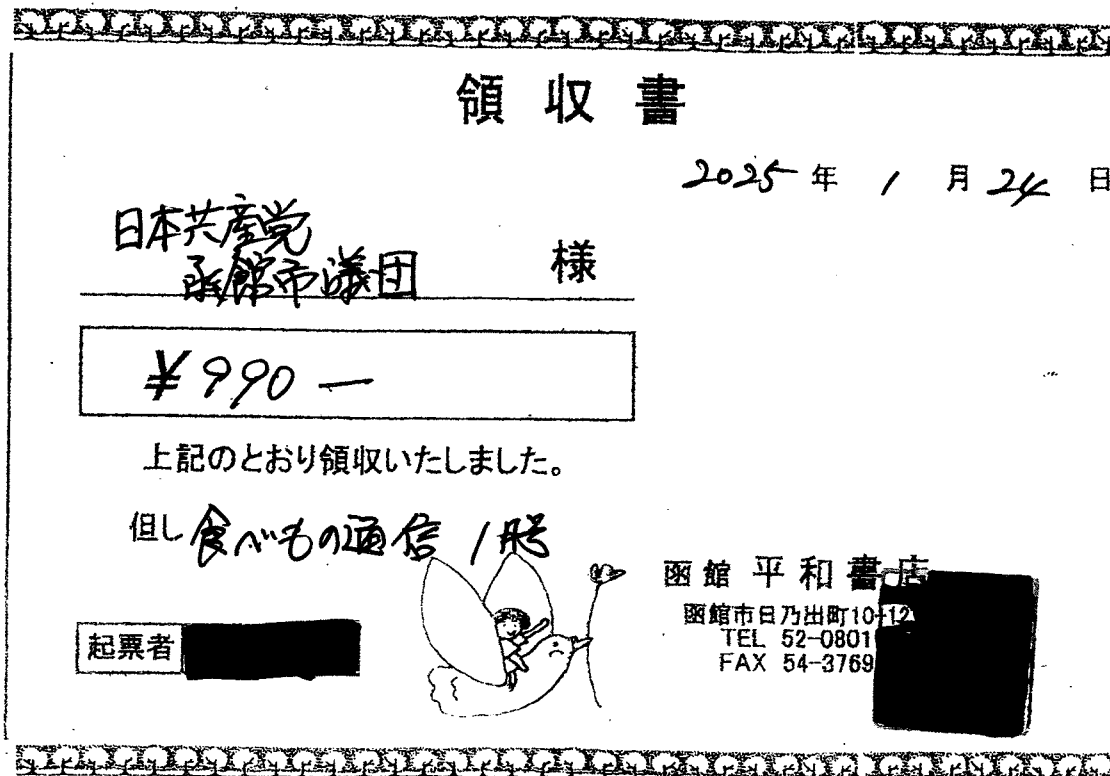 領収書
2025年1月24日
日本共産党
函館市議団 様
¥990—
上記のとおり領収いたしました。
但し 食べもの通信 1月号
函館 平和書店
函館市日乃出町10-12
TEL 52-0801
FAX 54-3769
起票者